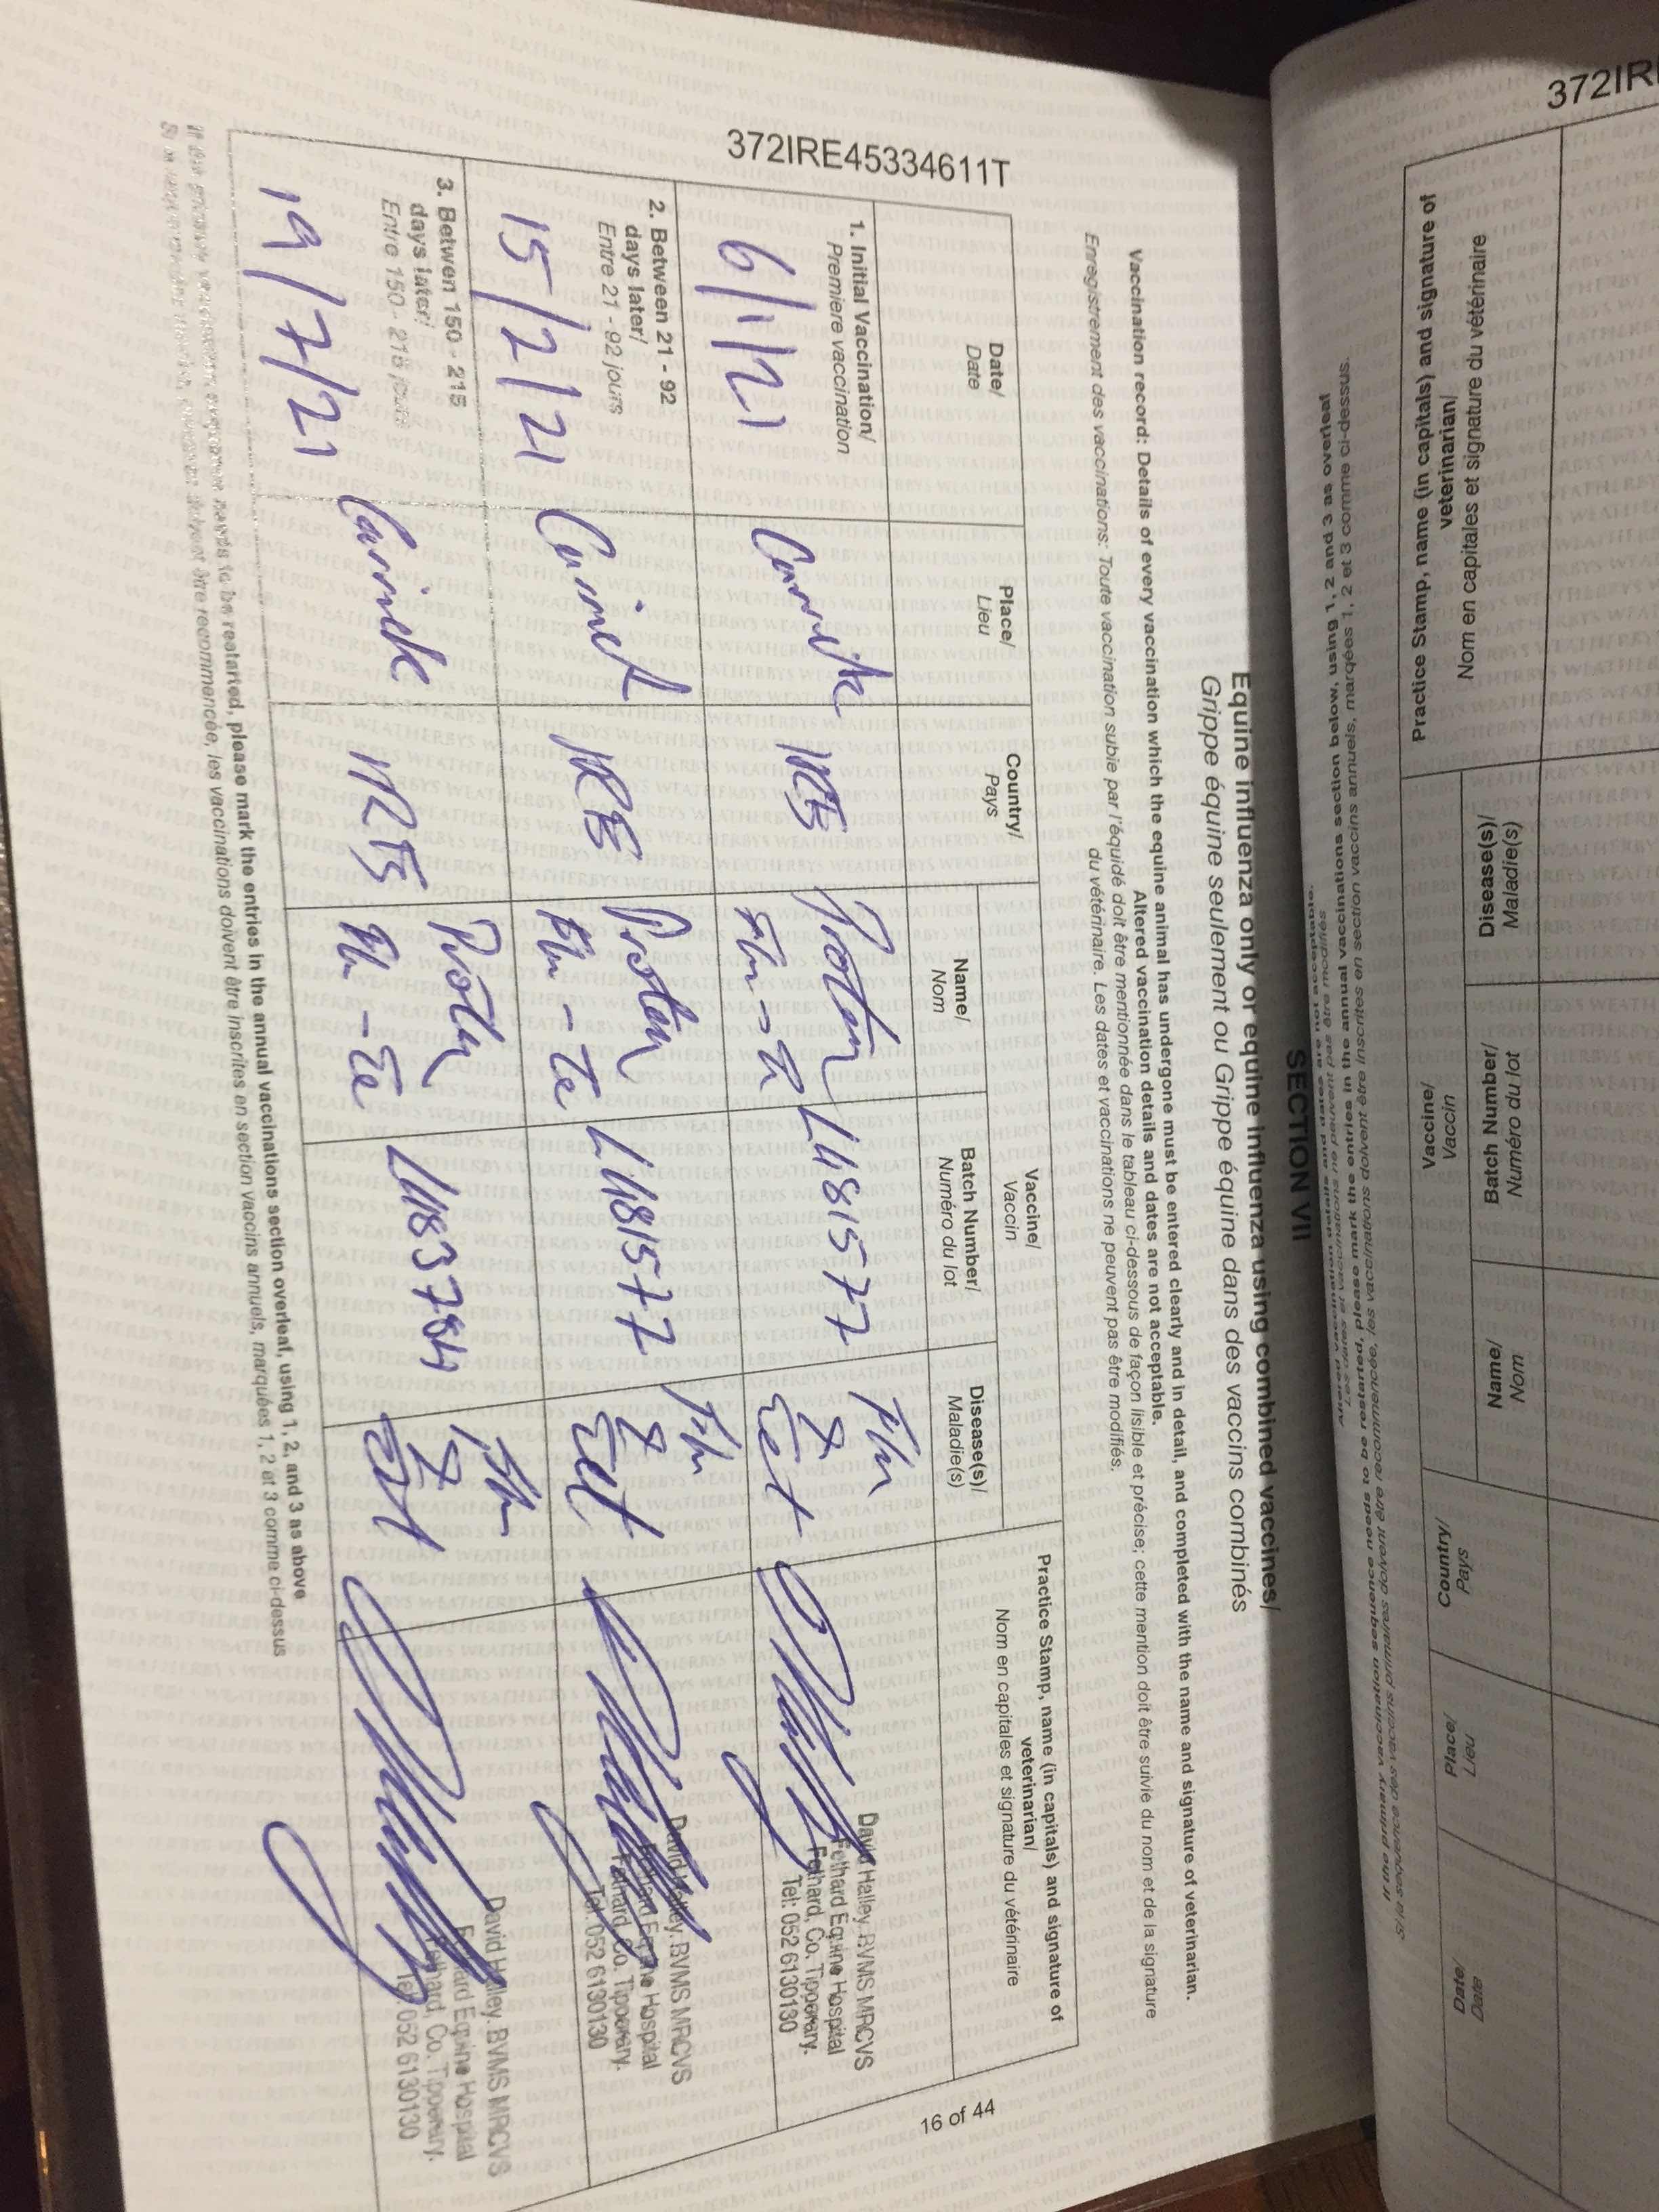 372IRE45334611T
SECTION VII
Equine influenza only or equine influenza using combined vaccines/
Grippe équine seulement ou Grippe équine dans des vaccins combinés
Vaccination record: Details of every vaccination which the equine animal has undergone must be entered clearly and in detail, and completed with the name and signature of veterinarian.
Altered vaccination details and dates are not acceptable.
Enregistrement des vaccinations: Toute vaccination subie par l'équidé doit être mentionnée dans le tableau ci-dessous de façon lisible et précise; cette mention doit être suivie du nom et de la signature
du vétérinaire. Les dates et vaccinations ne peuvent pas être modifiés.
Date/
Date
Place/
Lieu
Country/
Pays
Vaccine/
Vaccin
Name/
Nom
Batch Number/
Numéro du lot
Disease(s)/
Maladie(s)
Practice Stamp, name (in capitals) and signature of
veterinarian/
Nom en capitales et signature du vétérinaire
1. Initial Vaccination/
Premiere vaccination
6/1/21
IRE
L481577
Flu
&
Tet
David Halley. BVMS MRCVS
Fethard Equine Hospital
Fethard, Co. Tipperary.
Tel: 052 6130130
2. Between 21 - 92
days later/
Entre 21 - 92 jours
15/2/21
IRE
Flu-Te
L481577
Flu
&
Tet
David Halley. BVMS MRCVS
Fethard Equine Hospital
Fethard, Co. Tipperary.
Tel: 052 6130130
3. Betwen 150 - 215
days later/
Entre 150 - 215 jours
19/7/21
IRE
Flu-Te
L483784
Flu
&
David Halley. BVMS MRCVS
Fethard Equine Hospital
Fethard, Co. Tipperary.
Tel: 052 6130130
needs to be restarted, please mark the entries in the annual vaccinations section overleaf, using 1, 2, and 3 as above
doivent être recommencée, les vaccinations doivent être inscrites en section vaccins annuels, marquées 1, 2 et 3 comme ci-dessus
16 of 44
372IR
Practice Stamp, name (in capitals) and signature of
veterinarian/
Nom en capitales et signature du vétérinaire
Vaccine/
Vaccin
Disease(s)/
Maladie(s)
Batch Number/
Numéro du lot
Name/
Nom
Country/
Pays
Place/
Lieu
Date/
Date
Altered vaccination details and dates are not acceptable.
Les dates et vaccinations ne peuvent pas être modifiés
If the primary vaccination sequence needs to be restarted, please mark the entries in the annual vaccinations section below, using 1, 2 and 3 as overleaf
Si la sequence des vaccins primaires doivent être recommencée, les vaccinations doivent être inscrites en section vaccins annuels, marqées 1, 2 et 3 comme ci-dessus.